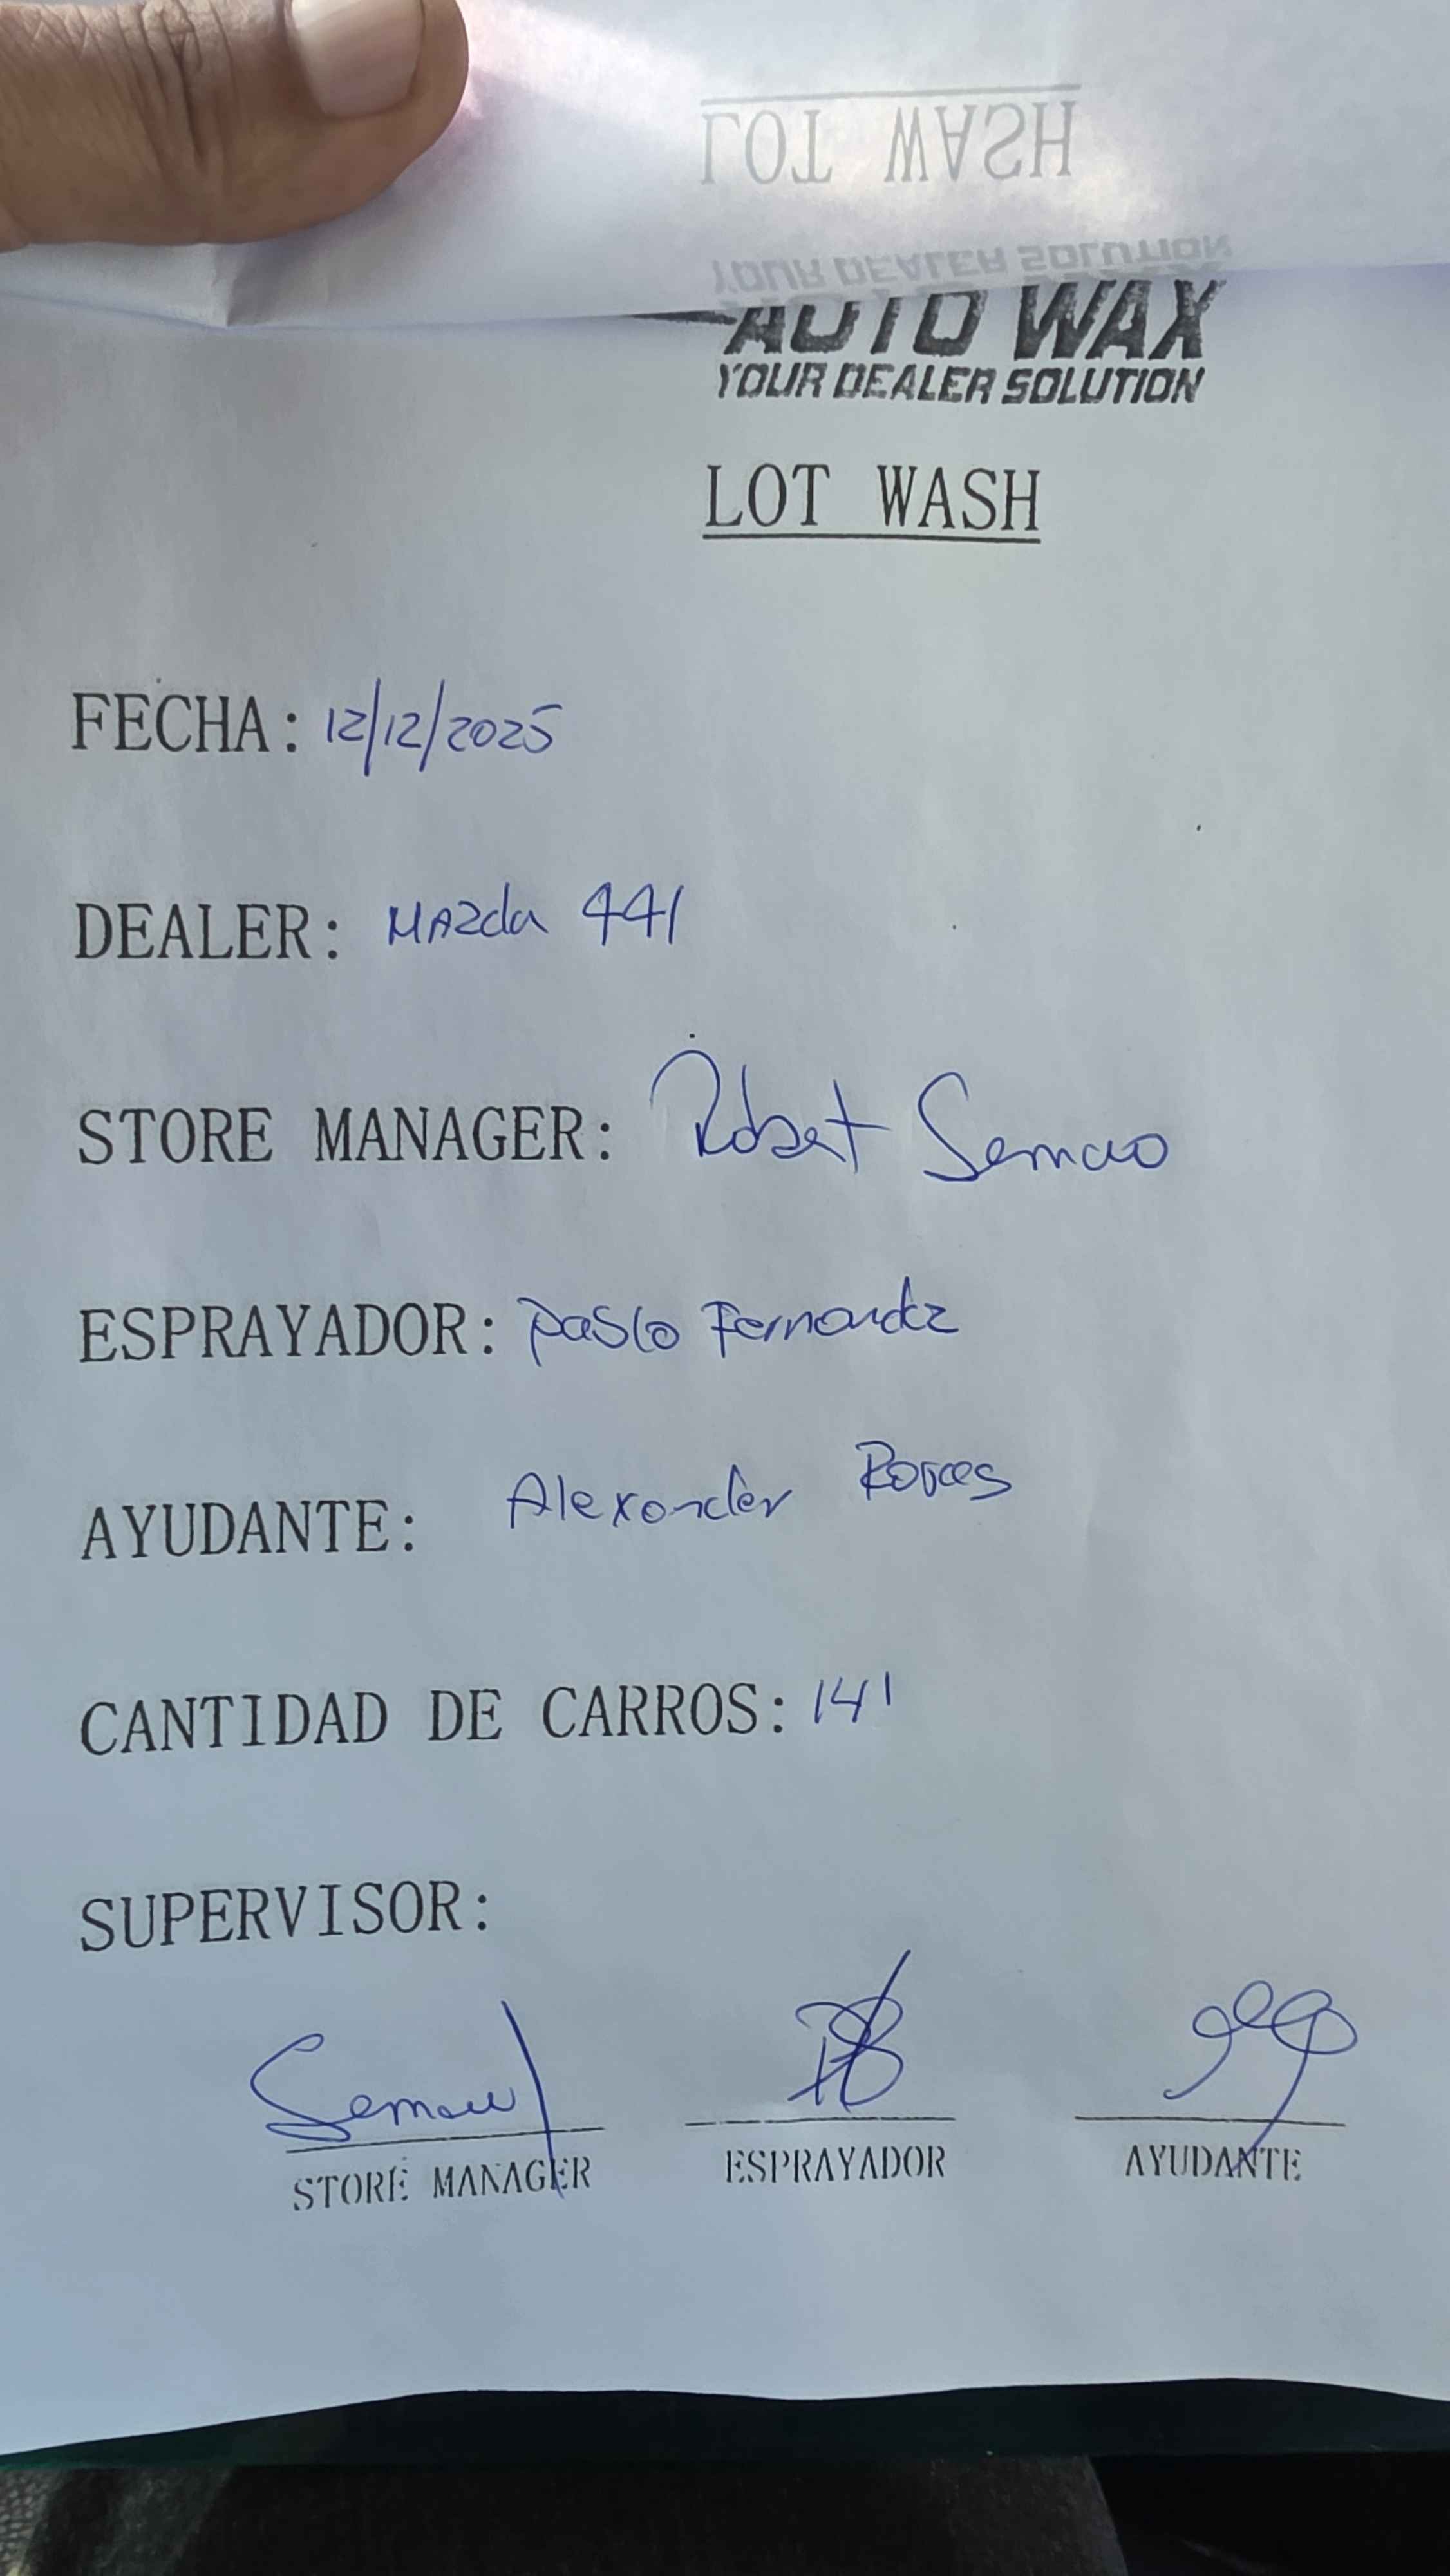 LOT WASH
YOUR DEALER SOLUTION
AUTO WAX
YOUR DEALER SOLUTION
LOT WASH
FECHA: 12/12/2025
DEALER: MAzda 441
STORE MANAGER: Robert
ESPRAYADOR: Pablo Fernandz
AYUDANTE: Alexander
CANTIDAD DE CARROS: 141
SUPERVISOR:
STORE MANAGER ESPRAYADOR AYUDANTE